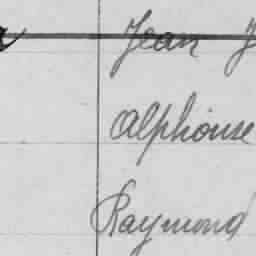 Jean J
Alphonse
Raymond